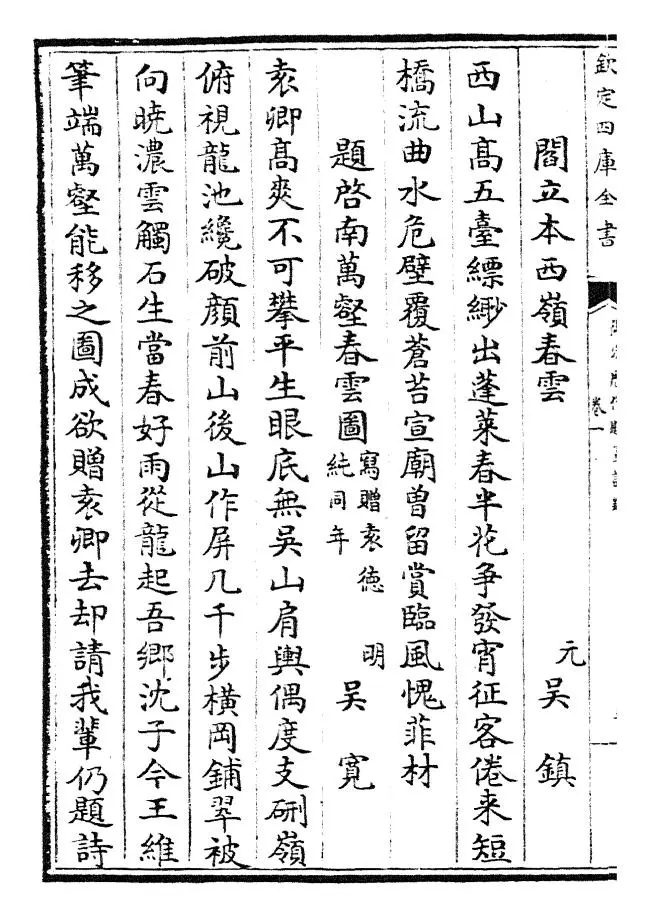 欽定四庫全書
卷一
閻立本西嶺春雲　元吳鎮
西山髙五臺縹緲出蓬萊春半花争發宵征客倦来短
橋流曲水危壁覆蒼苔宣廟曽留賞臨風愧菲材
題啓南萬壑春雲圖寫贈袁德純同年　明吳寛
袁卿髙爽不可攀平生眼底無吳山肩輿偶度支硎嶺
俯視龍池纔破顔前山後山作屏几千步横岡鋪翠被
向曉濃雲觸石生當春好雨從龍起吾鄉沈子今王維
筆端萬壑能移之圖成欲贈袁卿去却請我輩仍題詩